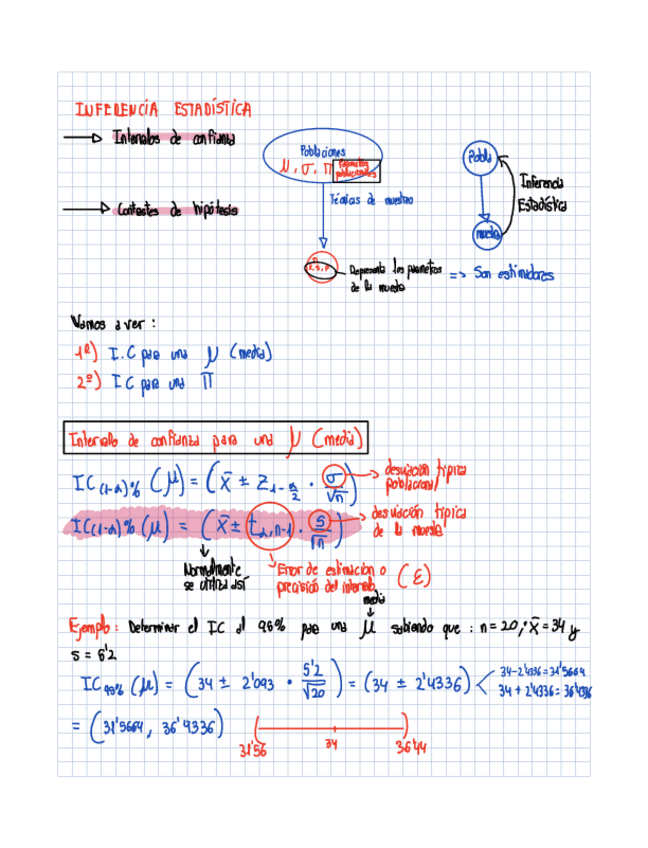 INFERENCIA ESTADÍSTICA
Intervalos de confianza
Contrastes de hipótesis
Poblaciones
μ, σ, Π Parámetros poblacionales
Técnicas de muestreo
Representa los parametros
de la muestra
=> Son estimadores
Pobla
muestra
Inferencia
Estadística
Vamos a ver :
1º) I.C para una μ (media)
2º) IC para una Π
Intervalo de confianza para una μ (media)
IC(1-α)% (μ) = (x̄ ± Z1-α/2 · σ/√n)
desviación típica
poblacional
IC(1-α)% (μ) = (x̄ ± tα,n-1 · s/√n)
desviación típica
de la muestra
Normalmente
se utiliza así
Error de estimación o
precisión del intervalo
(ε)
media
Ejemplo: Determinar el IC al 95% para una μ sabiendo que : n=20; x̄=34 y
s = 5'2
IC95% (μ) = (34 ± 2'093 · 5'2/√20) = (34 ± 2'4336)
34-2'4336=31'5664
34+2'4336=36'4336
= (31'5664, 36'4336)
31'56 34 36'44